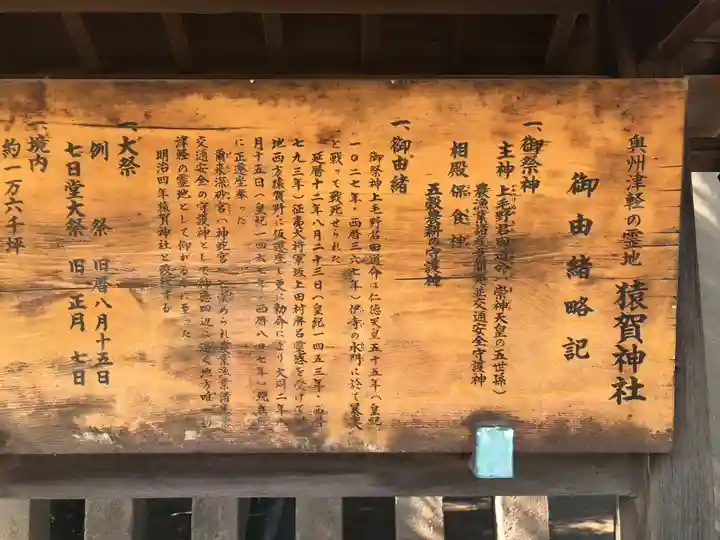 奥州津軽の霊地 猿賀神社
御由緒略記
一、御祭神
主神 上毛野君田道命(崇神天皇の五世孫)
農漁業 交通安全守護神
相殿 保食神
五穀農耕の守護神
一、御由緒
御祭神上毛野君田道命は仁徳天皇五十五年(皇紀
一〇二七年・西暦三六七年)伊寺の水門に於て蝦夷
と戦って戦死せられた
延暦十二年八月二十三日(皇紀一四五三年・西暦
七九三年)征夷大将軍坂上田村麿呂霊感を受けて
地西方猿賀野に仮遷座し更に勅命により大同二年八
月十五日(皇紀一四六七年・西暦八〇七年)現在
に正遷座なった
爾来深砂宮(神蛇宮)と崇められ農業漁業諸
交通安全の守護神として神徳四辺に遍く地方唯一の
津軽の霊地として仰がるゝに至った
明治四年猿賀神社と改称する
一、大祭
例祭 旧暦八月十五日
七日堂大祭 旧正月七日
一、境内
約一万六千坪